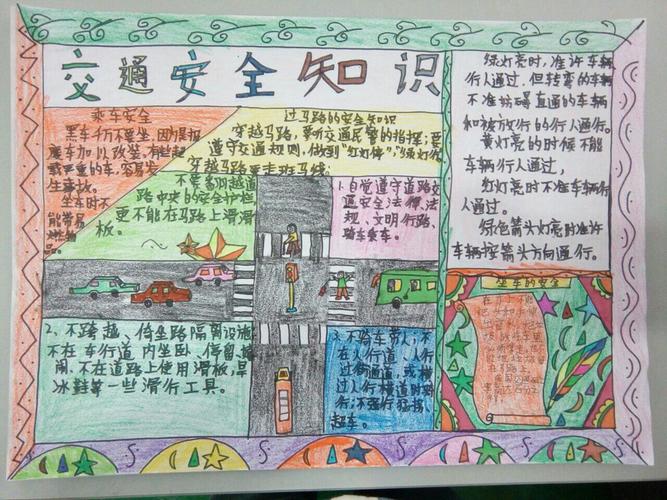 交通安全知识
乘车安全
黑车千万不要坐,因为是报
废车加以改装,有些超
载严重的车,容易发
生事故。
坐车时不
能带易
品。
过马路的安全知识
穿越马路,要听交通民警的指挥;要
遵守交通规则,做到“红灯停”,“绿灯行
穿越马路要走班马线;
不要翻越道
路中央的安全护栏,
更不能在马路上滑滑
板。
1.自觉遵守道路交
通安全法律、法
规、文明行路、
骑车乘车。
2、不跨越、倚坐路隔离设施
不在车行道内坐卧、停留、
闹,不在道路上使用滑板,旱
冰鞋等一些滑行工具。
3、不骑车带人,不
在人行道、人行
过街通道,或横
过人行横道时骑
行;不强行猛拐、
超车。
绿灯亮时,准许车辆
行人通过,但转弯的车辆
不准妨碍直通的车辆
和被放行的行人通行。
黄灯亮的时候不能
车辆行人通过,
红灯亮时不准车辆行
人通过。
绿色箭头灯亮时准许
车辆按箭头方向通行。
坐车的安全